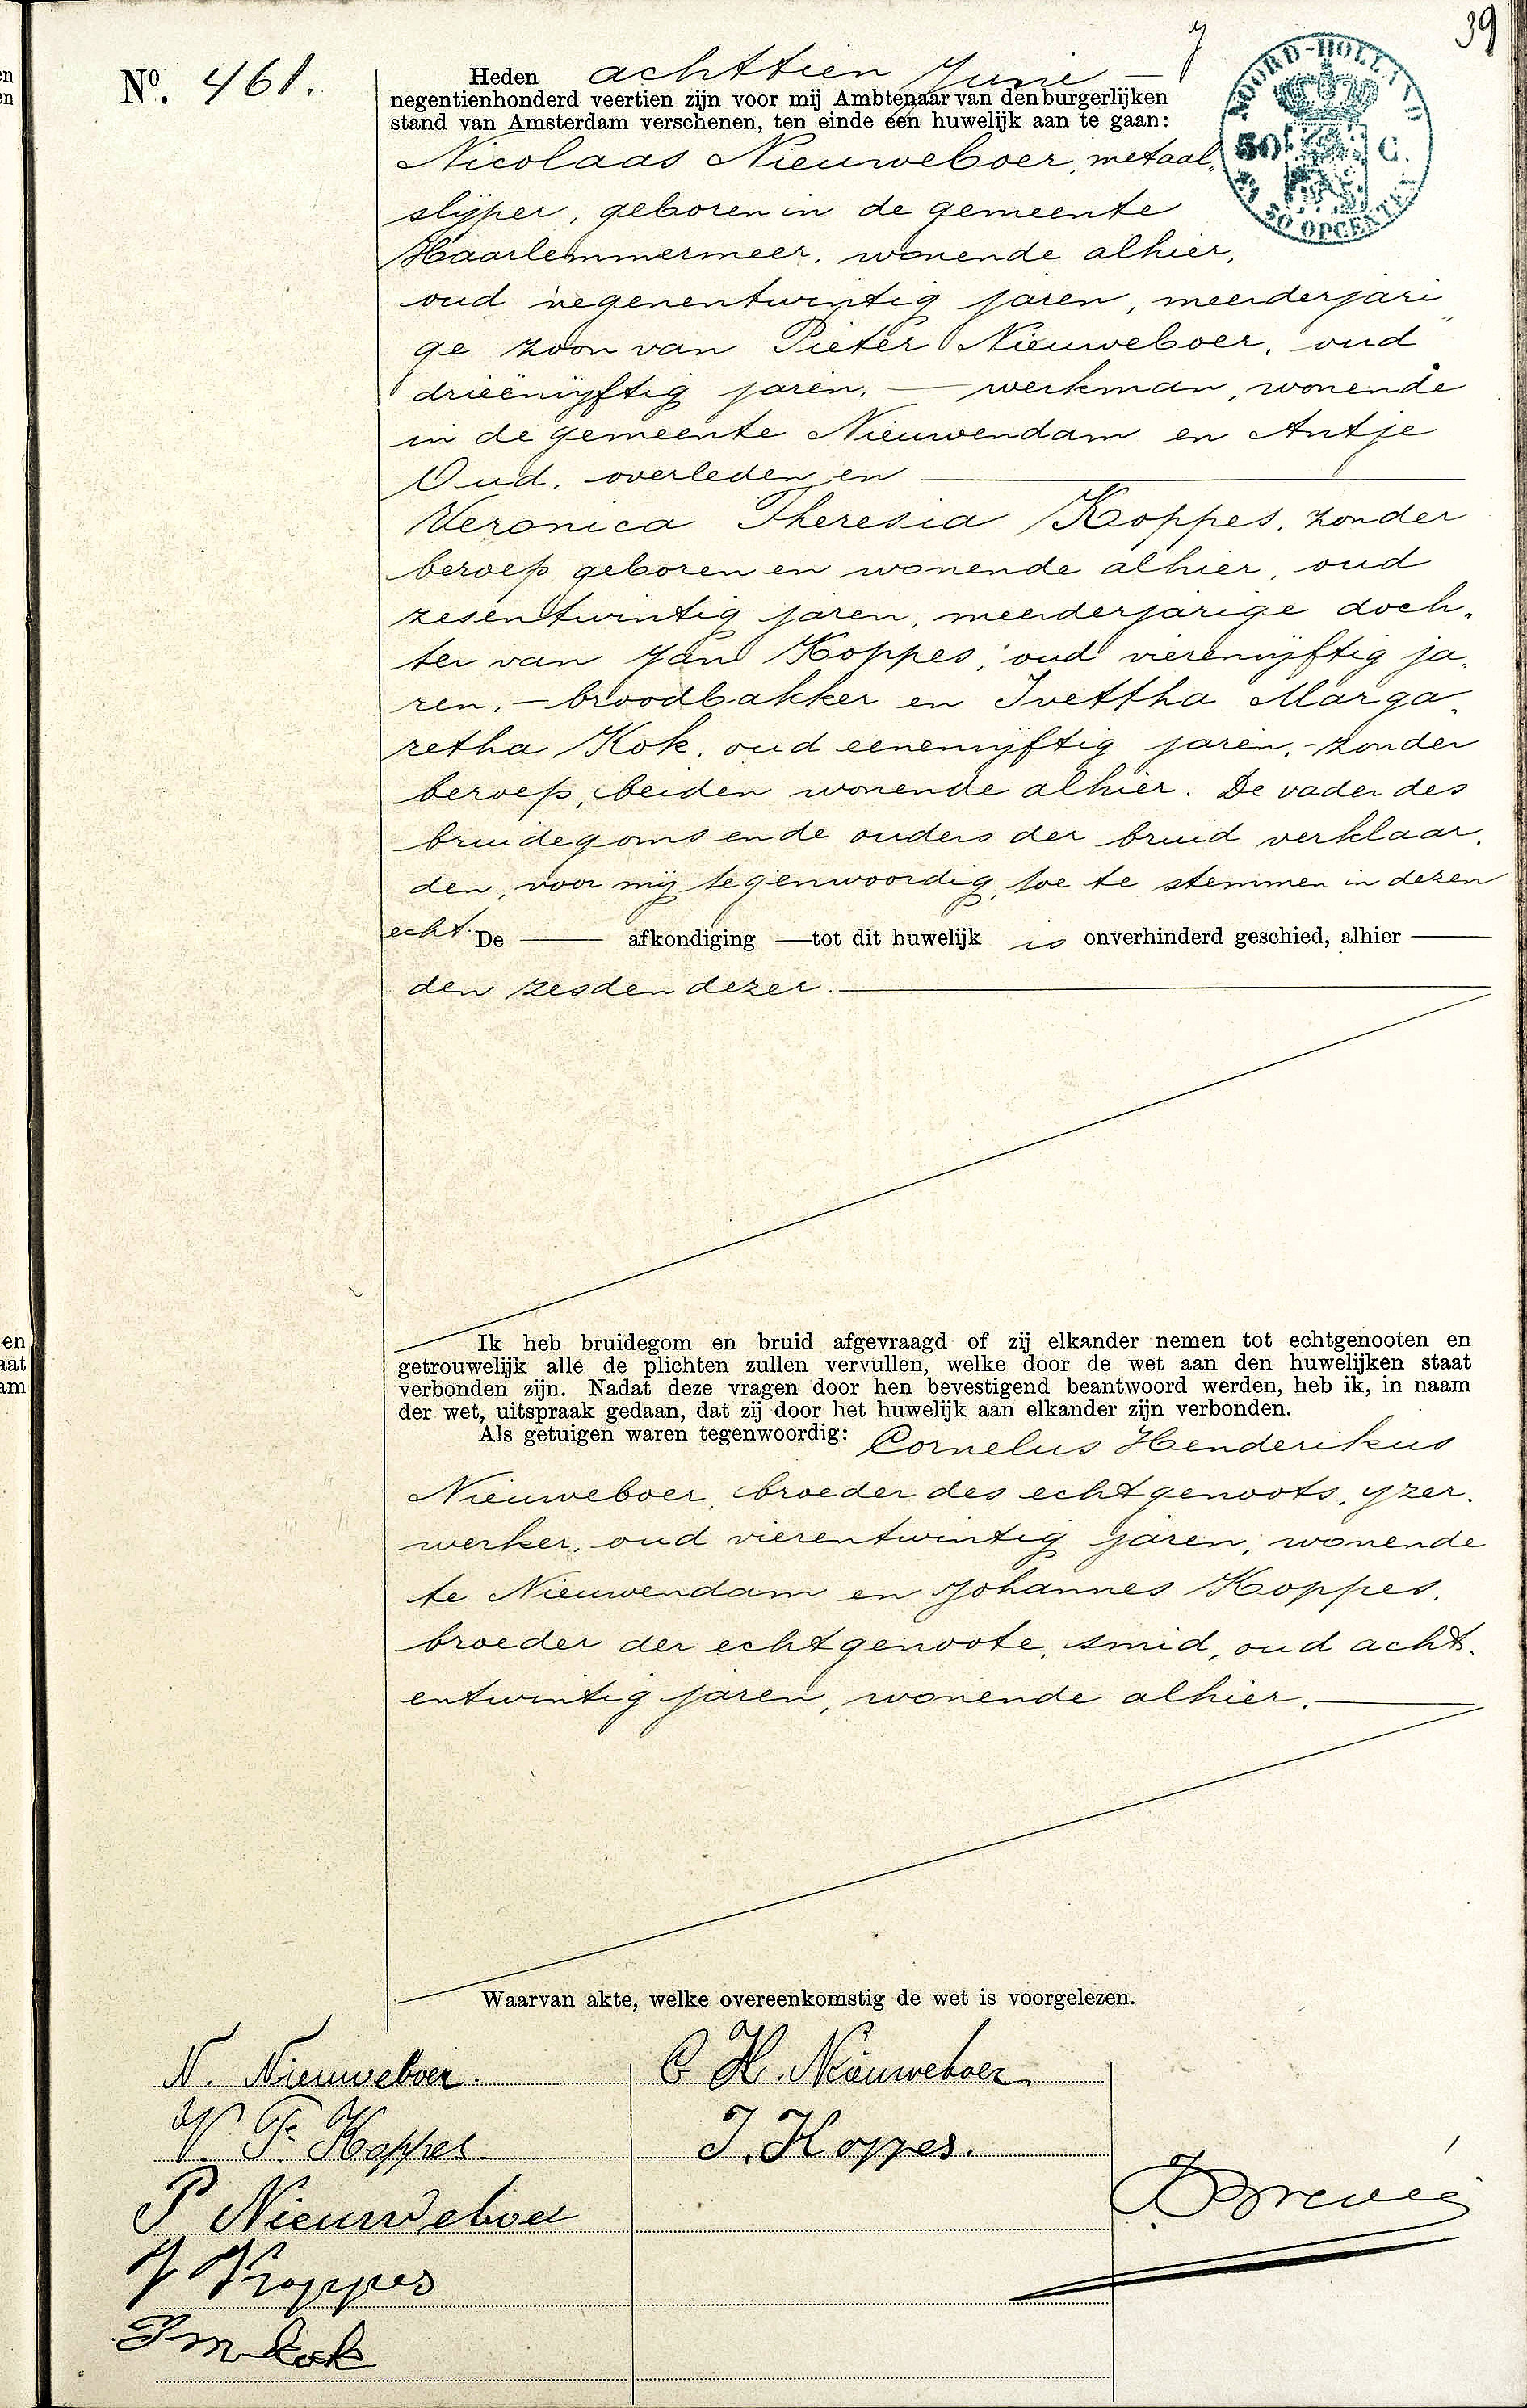 39
7
Nº. 461.
NOORD-HOLLAND
50 C.
50 OPCENTEN
Heden achttien Juni —
negentienhonderd veertien zijn voor mij Ambtenaar van den burgerlijken
stand van Amsterdam verschenen, ten einde een huwelijk aan te gaan:
Nicolaas Nieuweboer, metaal-
slijper, geboren in de gemeente
Haarlemmermeer, wonende alhier,
oud negenentwintig jaren, meerderjari
ge zoon van Pieter Nieuweboer, oud
drieënvijftig jaren, — werkman, wonende
in de gemeente Nieuwendam en Antje
Oud, overleden en —
Veronica Theresia Koppes, zonder
beroep geboren en wonende alhier, oud
zesentwintig jaren, meerderjarige doch-
ter van Jan Koppes, oud vierenvijftig ja-
ren, — broodbakker en Ivettha Marga-
retha Kok, oud eenenvijftig jaren, - zonder
beroep, beiden wonende alhier. De vader des
bruidegoms en de ouders der bruid verklaar-
den, voor mij tegenwoordig, toe te stemmen in dezen
echt. De — afkondiging — tot dit huwelijk is onverhinderd geschied, alhier —
den zesden dezer. —
Ik heb bruidegom en bruid afgevraagd of zij elkander nemen tot echtgenooten en
getrouwelijk alle de plichten zullen vervullen, welke door de wet aan den huwelijken staat
verbonden zijn. Nadat deze vragen door hen bevestigend beantwoord werden, heb ik, in naam
der wet, uitspraak gedaan, dat zij door het huwelijk aan elkander zijn verbonden.
Als getuigen waren tegenwoordig: Cornelus Henderikus
Nieuweboer, broeder des echtgenoots, yzer-
werker, oud vierentwintig jaren, wonende
te Nieuwendam en Johannes Koppes,
broeder der echtgenoote, smid, oud acht-
entwintig jaren, wonende alhier. —
Waarvan akte, welke overeenkomstig de wet is voorgelezen.
N. Nieuweboer.
V. T. Koppes
P Nieuweboer
J Koppes
I M Kok
C H. Nieuweboer
J. Koppes.
en
en
en
aat
am